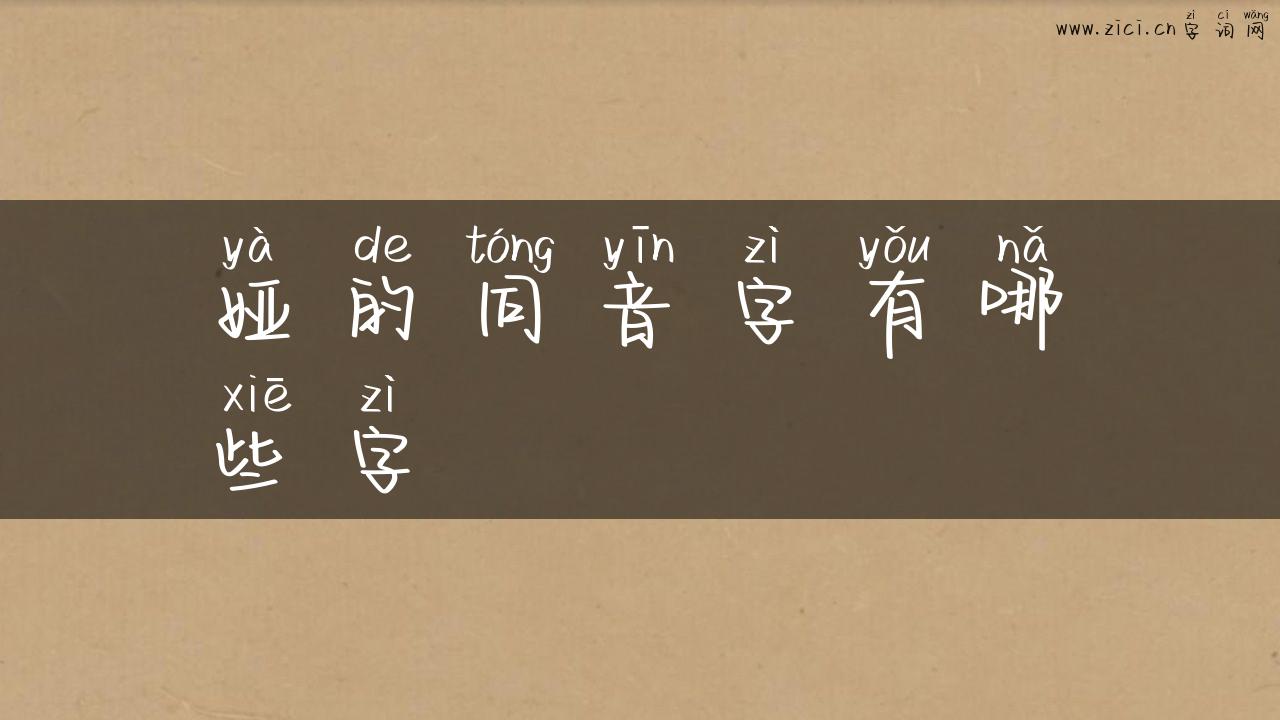 zì cí wǎng
www.zici.cn 字 词 网
yà de tóng yīn zì yǒu nǎ
娅 的 同 音 字 有 哪
xiē zì
些 字